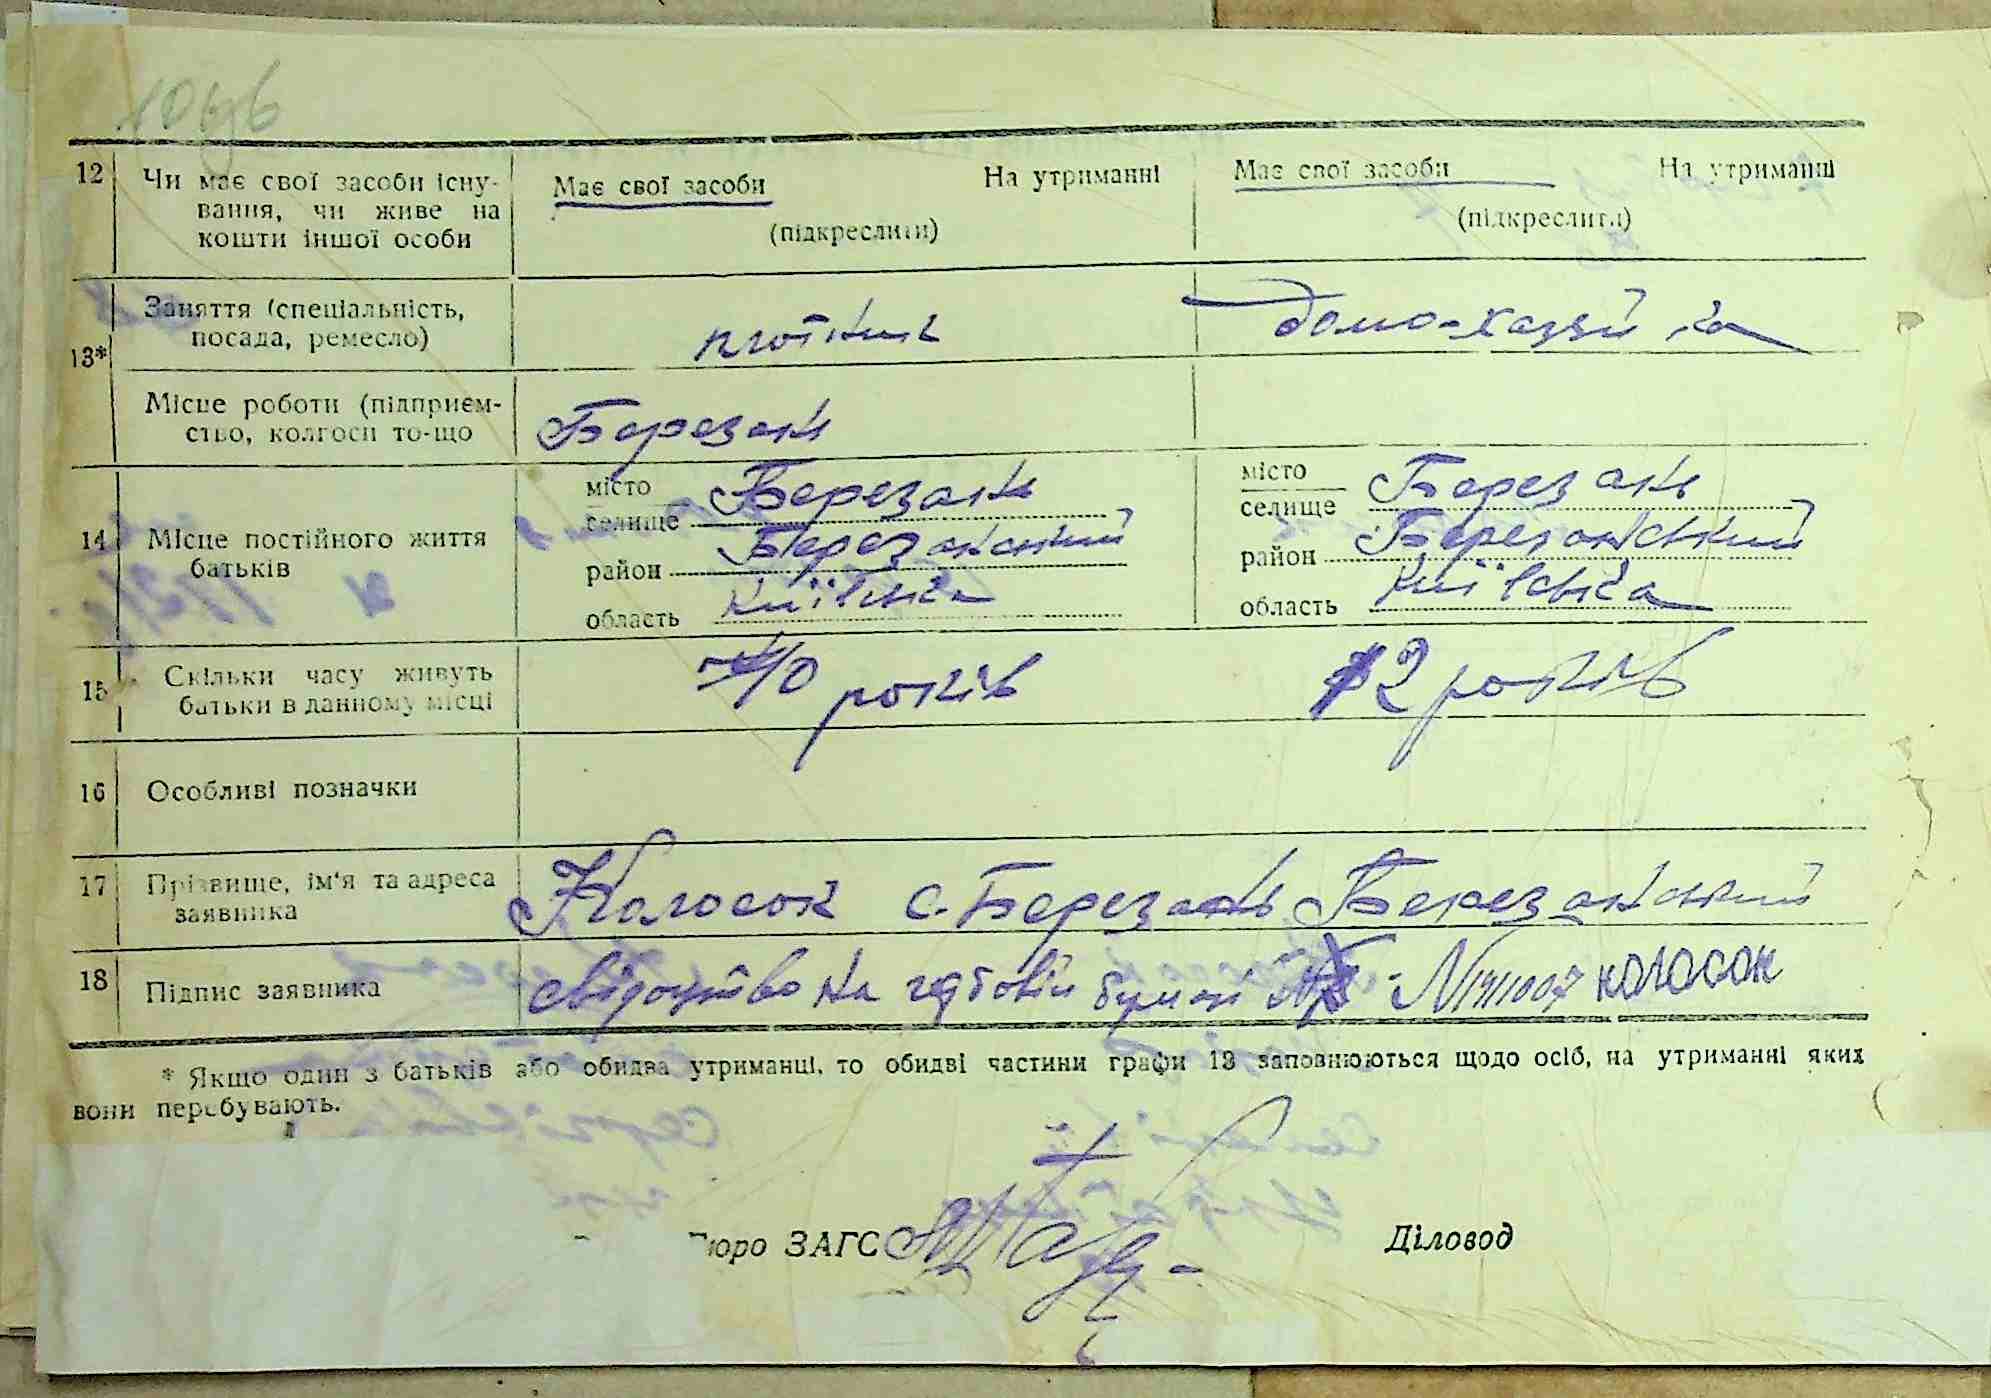 12 Чи має свої засоби існу-
вання, чи живе на
кошти іншої особи
Має свої засоби На утриманні
(підкреслити)
Має свої засоби На утриманні
(підкреслити)
13*
Заняття (спеціальність,
посада, ремесло)
плотник
домо-хазяйка
Місце роботи (підприєм-
ство, колгосп то-що
Березань
14 Місце постійного життя
батьків
місто
селище Березань
район Березанський
область Київська
місто
селище Березань
район Березанський
область Київська
15 Скільки часу живуть
батьки в данному місці
40 років
2 років
16 Особливі позначки
17 Прізвище, ім'я та адреса
заявника
Колосок с. Березань Березанський
18 Підпис заявника
свідоцтво на гербовій бумазі № 1911007 колосок
* Якщо один з батьків або обидва утриманці, то обидві частини графи 13 заповнюються щодо осіб, на утриманні яких
вони перебувають.
Бюро ЗАГС Діловод